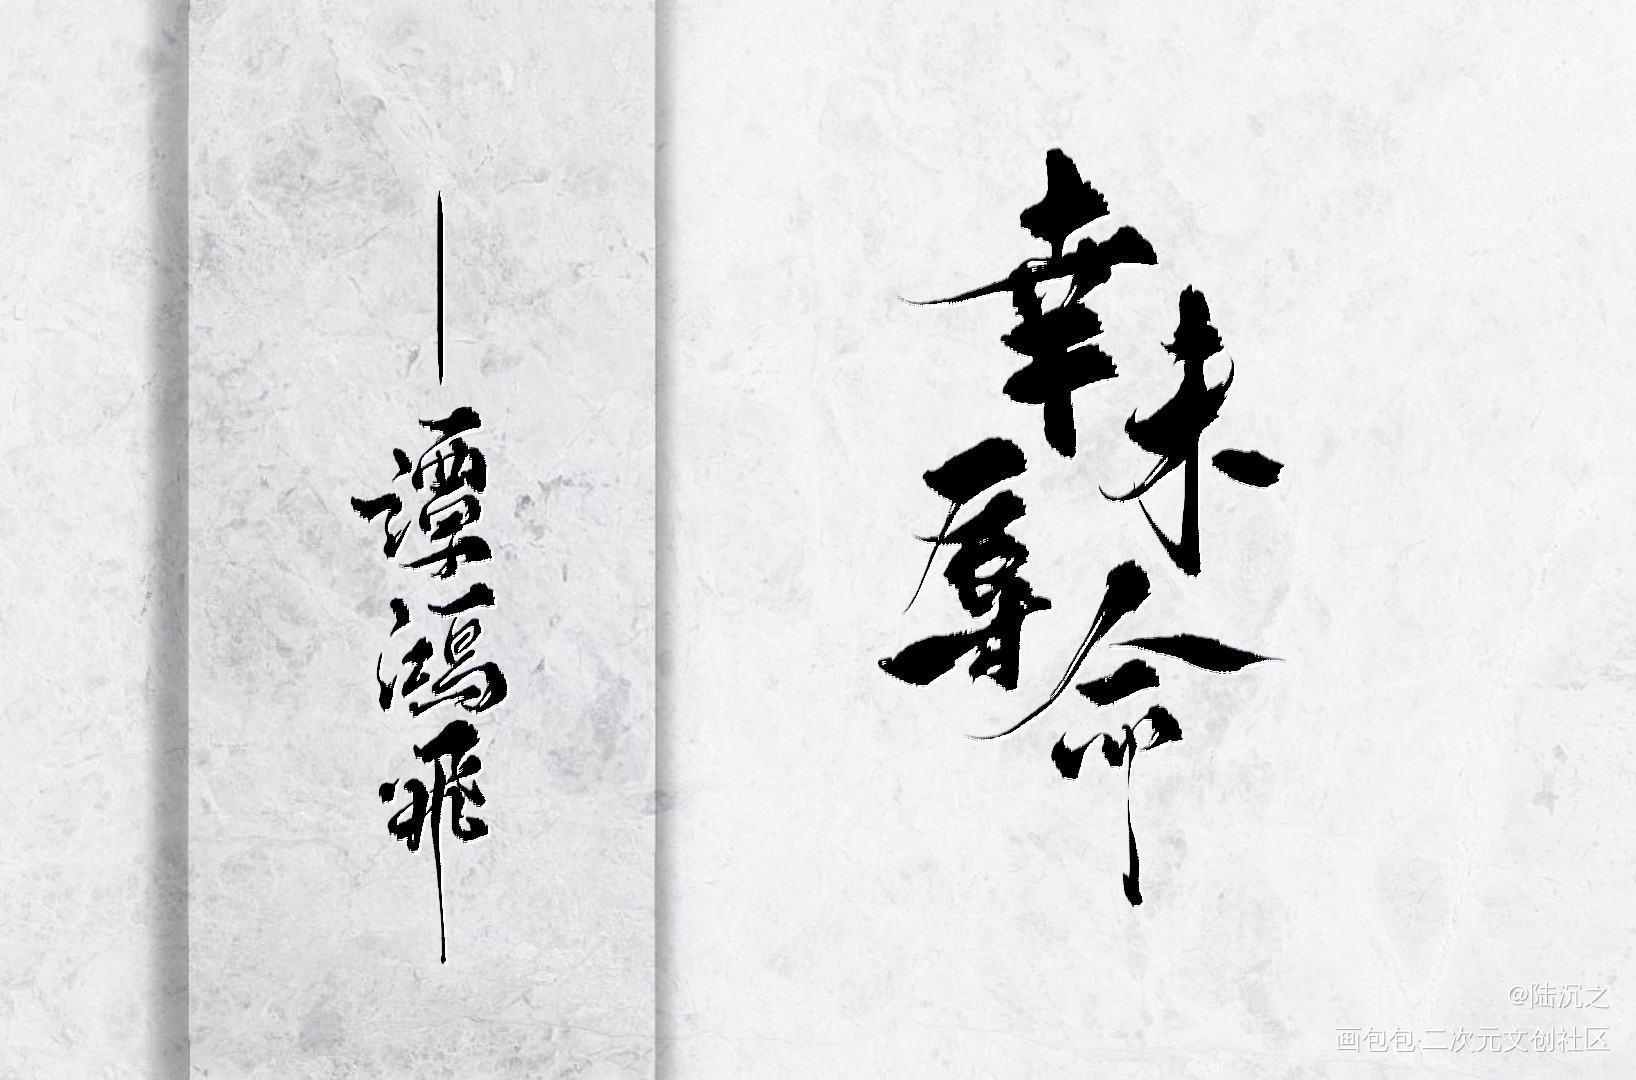 幸未辱命
——譚鴻飛
@陆沉之
画包包·二次元文创社区